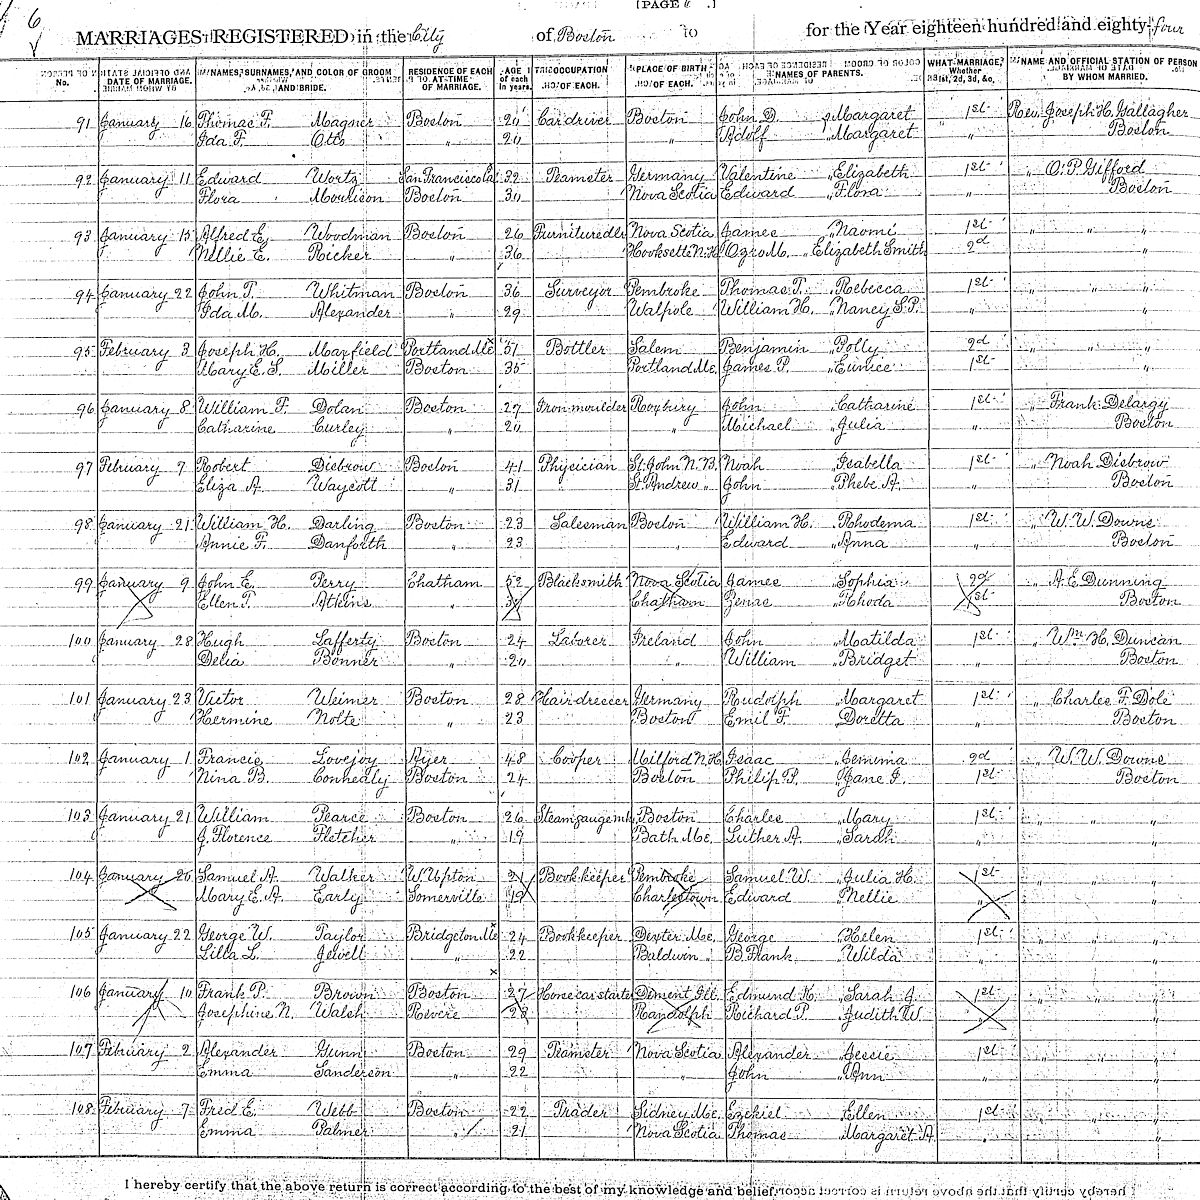 6
[PAGE 6 .]
MARRIAGES REGISTERED in the City of Boston for the Year eighteen hundred and eighty-four
No. DATE OF MARRIAGE. NAMES, SURNAMES, AND COLOR OF GROOM AND BRIDE. RESIDENCE OF EACH AT TIME OF MARRIAGE. AGE of each in years. OCCUPATION OF EACH. PLACE OF BIRTH OF EACH. NAMES OF PARENTS. WHAT MARRIAGE, Whether 1st, 2d, 3d, &c. NAME AND OFFICIAL STATION OF PERSON BY WHOM MARRIED.
91 January 16 Thomas F. Magner Boston 26 Car driver Boston John D. Margaret 1st Rev. Joseph H. Gallagher
Ida F. Otto " 20 " Adolf " Margaret " Boston
92 January 11 Edward Wortz San Francisco Cal 32 Teamster Germany Valentine " Elizabeth 1st " O. P. Gifford
Flora Morrison Boston 30 Nova Scotia Edward " Flora " Boston
93 January 15 Alfred E. Woodman Boston 26 Furniture dlr Nova Scotia James " Naomi 1st " " "
Nellie E. Ricker " 36 Hooksett N.H. Ozro M. " Elizabeth Smith 2d "
94 January 22 John T. Whitman Boston 36 Surveyor Pembroke Thomas T. " Rebecca 1st " " "
Ida M. Alexander " 29 Walpole William H. " Nancy S.P. " "
95 February 3 Joseph H. Maxfield Portland Me 51 Bottler Salem Benjamin " Polly 2d " " "
Mary E. S. Miller Boston 35 Portland Me. James P. " Eunice 1st "
96 January 8 William F. Dolan Boston 27 Iron moulder Roxbury John Catharine 1st " Frank Delargy
Catharine Curley " 20 " Michael " Julia " Boston
97 February 7 Robert Disbrow Boston 41 Physician St. John N.B. Noah Isabella 1st " Noah Disbrow
Eliza A. Waycott " 31 St. Andrew " John " Phebe A. " Boston
98 January 21 William H. Darling Boston 23 Salesman Boston William H. " Rhodema 1st " W. W. Downs
Annie F. Danforth " 23 " Edward " Anna " Boston
99 January 9 John E. Perry Chatham 52 Blacksmith Nova Scotia James Sophia 2d " A. E. Dunning
Ellen T. Atkins " Chatham Zenas " Rhoda 1st Boston
100 January 28 Hugh Lafferty Boston 24 Laborer Ireland John " Matilda 1st " Wm. H. Duncan
Delia Bonner " 20 " William " Bridget " Boston
101 January 23 Victor Weimer Boston 28 Hairdresser Germany Rudolph " Margaret 1st " Charles F. Dole
Hermine Nolte " 23 Boston Emil F. Doretta " Boston
102 January 1 Francis Lovejoy Ayer 48 Cooper Milford N.H. Isaac Jemima 2d " W. W. Downs
Nina B. Conneally Boston 24 Boston Philip P. " Jane J. 1st Boston
103 January 21 William Pearce Boston 26 Boston Charles " Mary 1st " "
J. Florence Fletcher " 19 Bath Me. Luther A. " Sarah " "
104 January 26 Samuel A. Walker W. Upton 21 Bookkeeper Pembroke Samuel W. " Julia H. 1st " "
Mary E. A. Early Somerville 19 Charlestown Edward " Nellie " "
105 January 22 George W. Taylor Bridgeton Me 24 Bookkeeper Dexter Me. George " Helen 1st " "
Lilla L. Jewell " 22 Baldwin " B. Frank " Wilda " "
106 January 10 Frank P. Brown Boston 27 Horse car starter Dement Ill. Edmund K. " Sarah J. 1st " "
Josephine N. Walsh Revere 28 Randolph Richard P. " Judith W. " "
107 February 2 Alexander Gunn Boston 29 Teamster Nova Scotia Alexander " Jessie 1st " "
Emma Sanderson " 22 " John " Ann " "
108 February 7 Fred E. Webb Boston 22 Trader Sidney Me. Ezekiel Ellen 1st " "
Emma Palmer " 21 Nova Scotia Thomas " Margaret A. " "
I hereby certify that the above return is correct according to the best of my knowledge and belief.